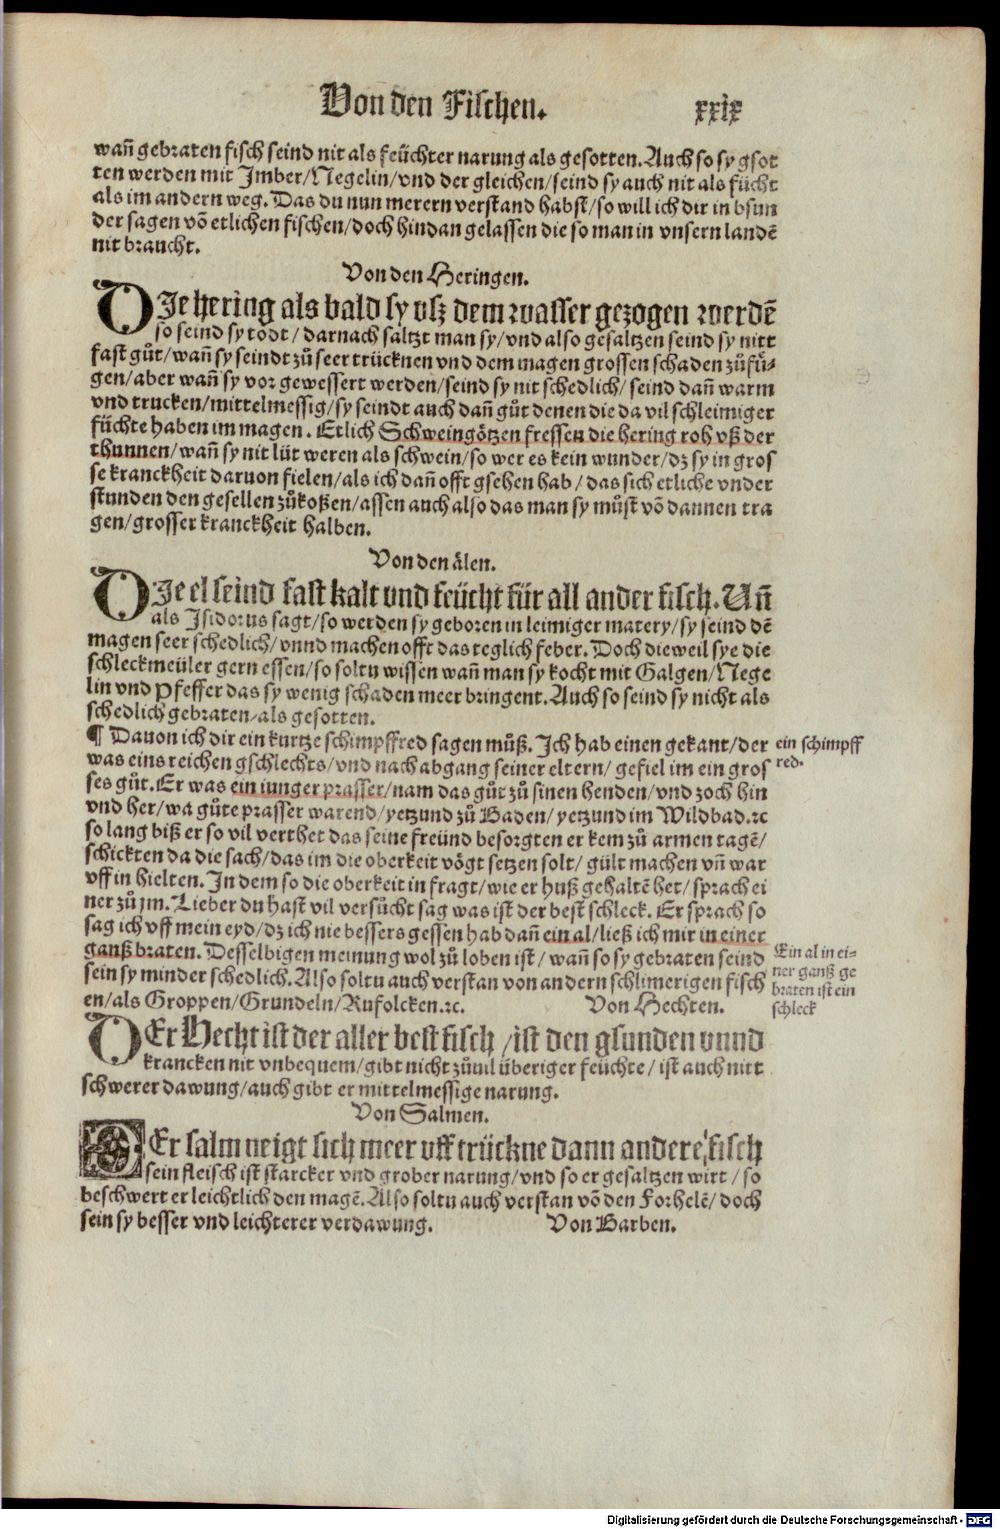 Von den Fischen. xxix
wañ gebraten fisch seind nit als feüchter narung als gesotten. Auch so sy gsot
ten werden mit Imber/Negelin/vnd der gleichen/seind sy auch nit als fücht
als im andern weg. Das du nun merern verstand habst/so will ich dir in bsun
der sagen võ etlichen fischen/doch hindan gelassen die so man in vnsern landẽ
nit braucht.
Von den Heringen.
DJe hering als bald sy vsz dem wasser gezogen werdẽ
so seind sy todt/ darnach saltzt man sy/vnd also gesaltzen seind sy nitt
fast gůt/wañ sy seindt zů seer trücknen vnd dem magen grossen schaden zůfü-
gen/aber wañ sy vor gewessert werden/seind sy nit schedlich/ seind dañ warm
vnd trucken/mittelmessig/sy seindt auch dañ gůt denen die da vil schleimiger
füchte haben im magen. Etlich Schweingötzen fressen die hering roh vß der
thunnen/wañ sy nit lüt weren als schwein/so wer es kein wunder/dz sy in gros
se kranckheit daruon fielen/als ich dañ offt gsehen hab/ das sich etliche vnder
stunden den gesellen zůkoßen/assen auch also das man sy můst võ dannen tra
gen/grosser kranckheit halben.
Von den älen.
DJe el seind fast kalt vnd feücht für all ander fisch. Vñ
als Isidorus sagt/so werden sy geboren in leimiger matery/sy seind dẽ
magen seer schedlich/vnnd machen offt das teglich feber. Doch dieweil sye die
schleckmeüler gern essen/so soltu wissen wañ man sy kocht mit Galgen/Nege
lin vnd Pfeffer das sy wenig schaden meer bringent. Auch so seind sy nicht als
schedlich gebraten/als gesotten.
¶ Dauon ich dir ein kurtze schimpffred sagen můß. Ich hab einen gekant/der
ein schimpff
red.
was eins reichen gschlechts/vnd nach abgang seiner eltern/ gefiel im ein gros
ses gůt. Er was ein iunger prasser/nam das gůt zů sinen henden/vnd zoch hin
vnd her/wa gůte prasser warend/yetzund zů Baden/yetzund im Wildbad.ꝛc
so lang biß er so vil verthet das seine freünd besorgten er kem zů armen tagẽ/
schickten da die sach/das im die oberkeit vögt setzen solt/ gült machen vñ war
vff in hielten. In dem so die oberkeit in fragt/wie er huß gehaltẽ het/ sprach ei
ner zů jm. Lieber du hast vil versůcht sag was ist der best schleck. Er sprach so
sag ich vff mein eyd/dz ich nie bessers gessen hab dañ ein al/ließ ich mir in einer
ganß braten. Desselbigen meinung wol zů loben ist/ wañ so sy gebraten seind
Ein al in ei-
ner ganß ge
braten ist ein
schleck
sein sy minder schedlich. Also soltu auch verstan von andern schlimerigen fisch
en/als Groppen/Grundeln/Rufolcken.ꝛc.
Von Hechten.
DEr Hecht ist der aller best fisch/ist den gsunden vnnd
krancken nit vnbequem/gibt nicht zůuil überiger feüchte/ ist auch nitt
schwerer dawung/auch gibt er mittelmessige narung.
Von Salmen.
DEr salm neigt sich meer vff trückne dann andere fisch
sein fleisch ist starcker vnd grober narung/vnd so er gesaltzen wirt/ so
beschwert er leichtlich den magẽ. Also soltu auch verstan võ den Forhelẽ/ doch
sein sy besser vnd leichterer verdawung.
Von Barben.
Digitalisierung gefördert durch die Deutsche Forschungsgemeinschaft - DFG